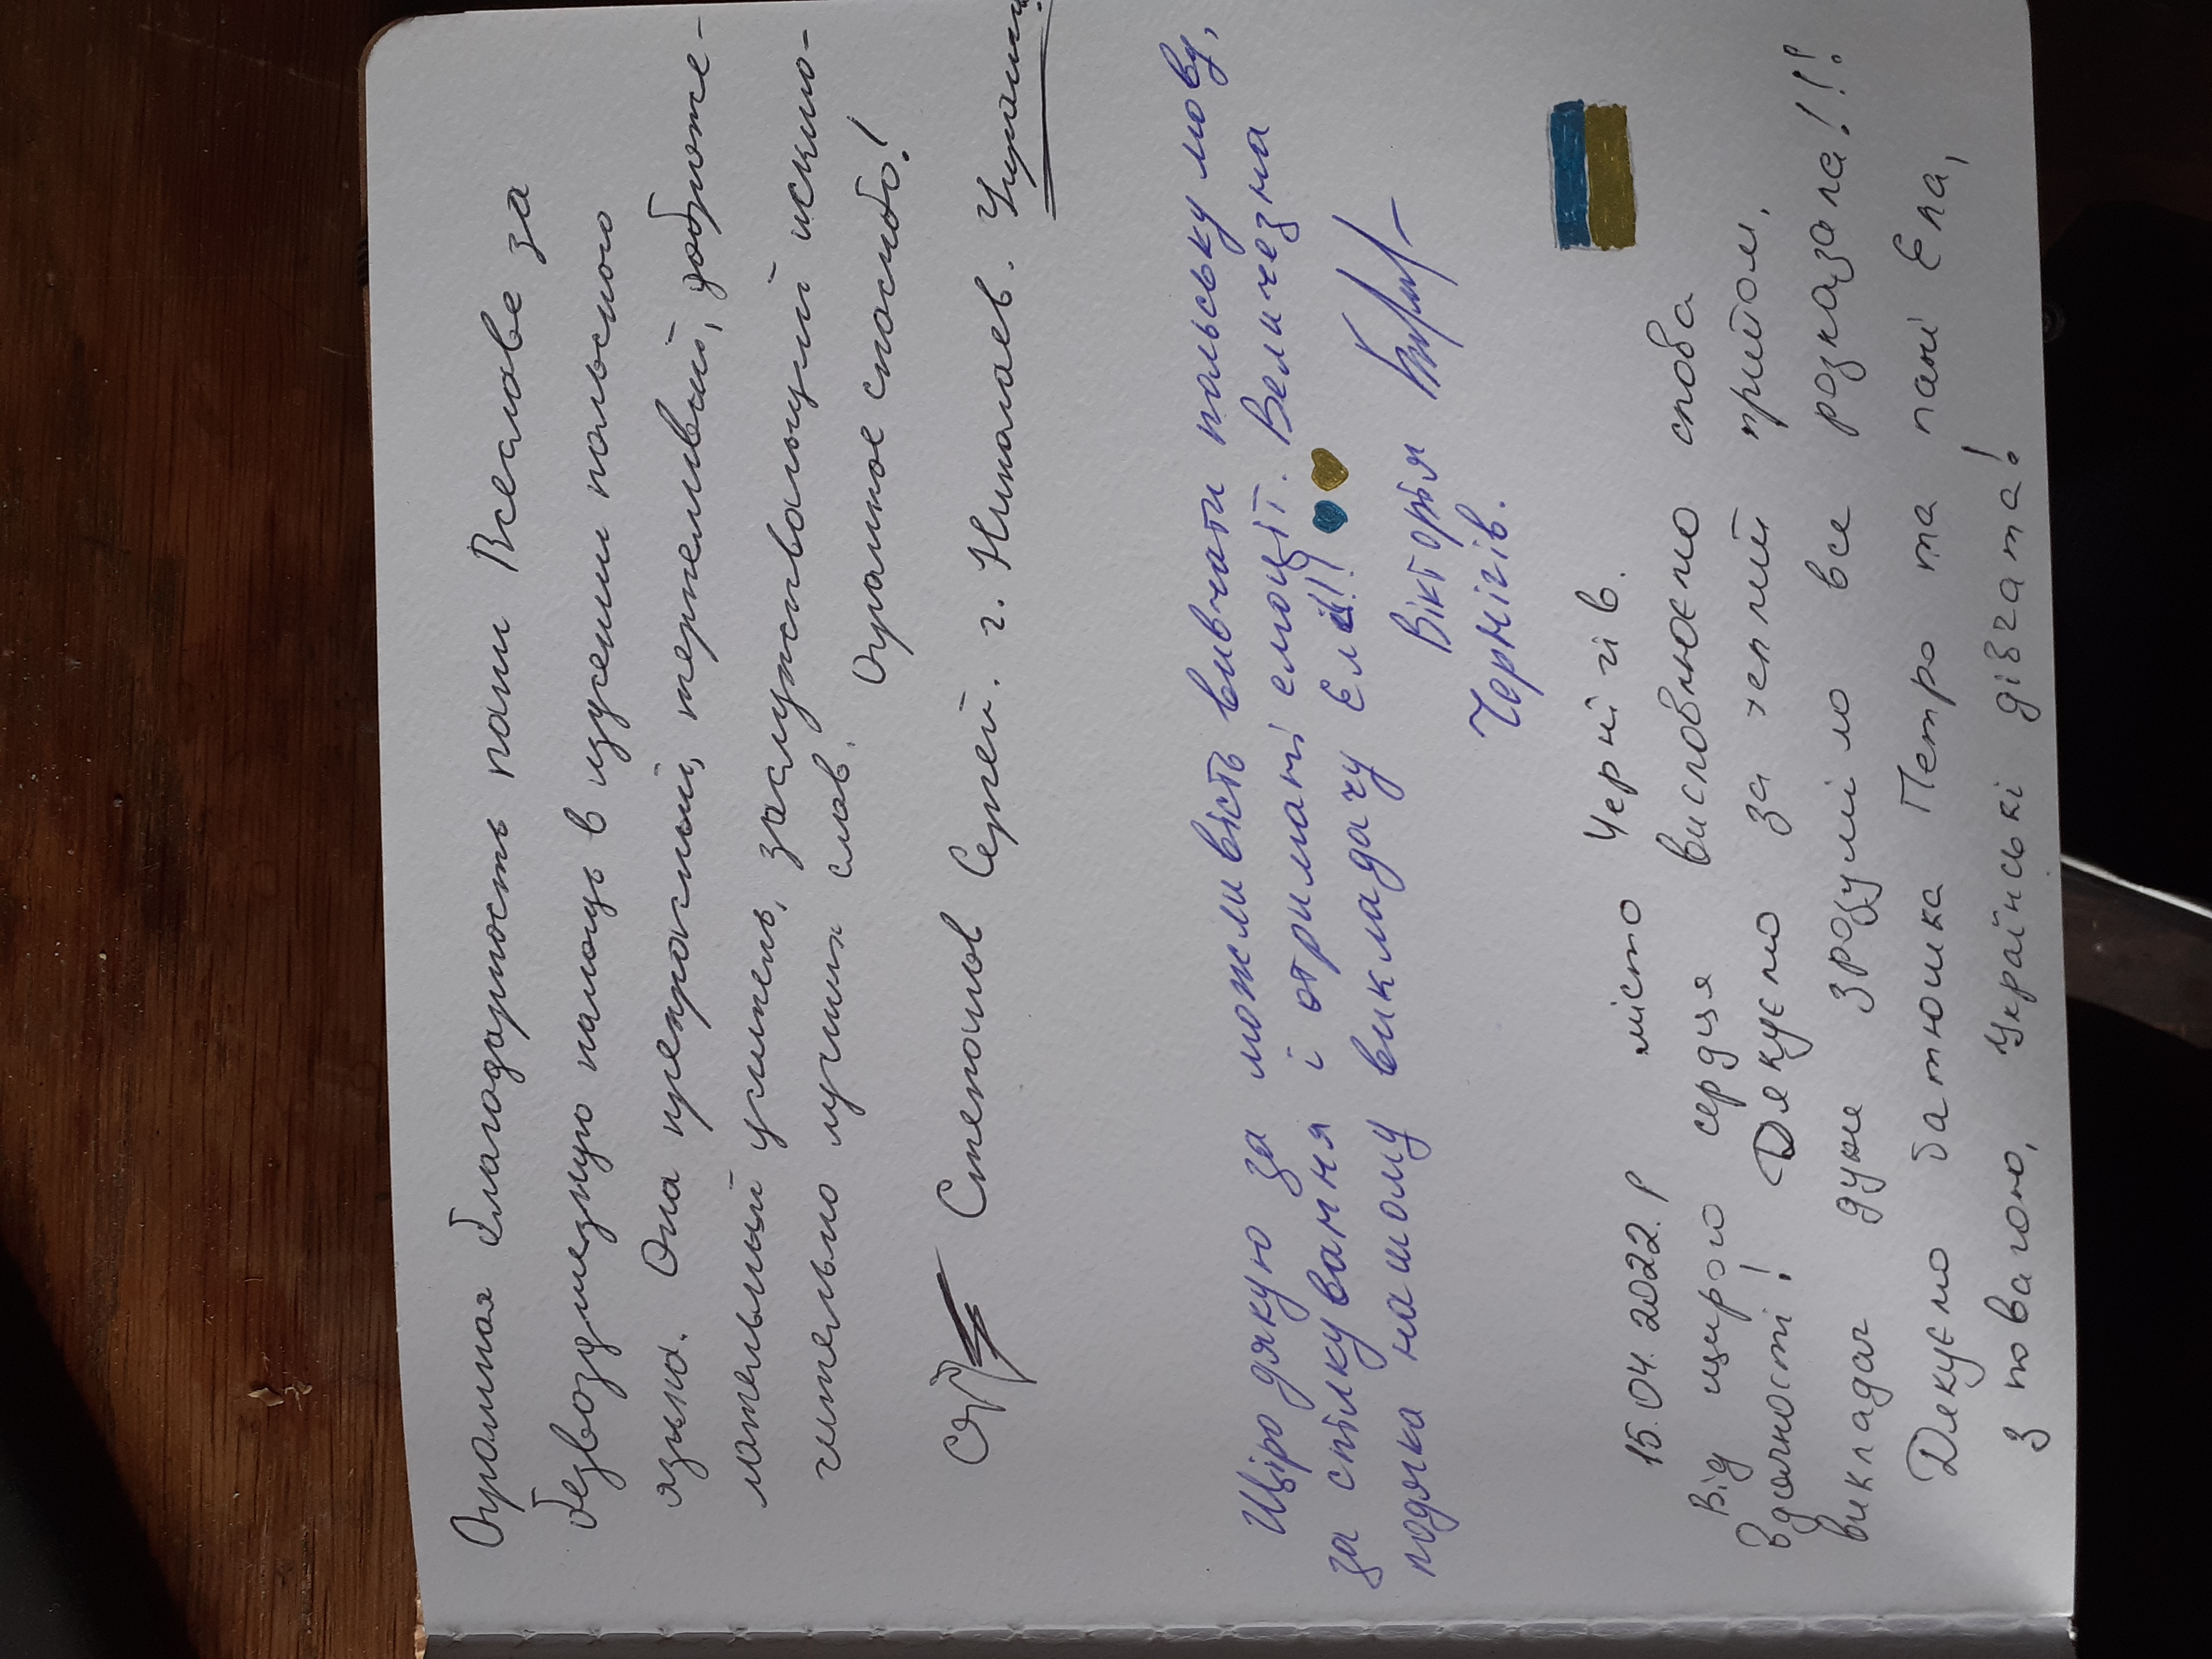 Огромная благодарность пани Веславе за
безвозмездную помощь в изучении польского
языка. Она прекрасный, терпеливый, доброже-
лательный учитель, заслуживающий исклю-
чительно лучших слов.
Огромное спасибо!
Степанов Сергей. г. Николаев. Украина
Щіро дякую за можливість вивчати польську мову,
за спілкування і отриматі емоції. Величезна
подяка нашому викладачу Елі!!!
Вікторія
Чернігів.
15.04.2022.р місто Чернігів.
Від щирого серця висловлюємо слова
вдячності! Дякуємо за теплий прийом,
викладач дуже зрозуміло все розказала!!!
Дякуємо батюшка Петро та пані Ела,
з повагою, Українські дівчата!